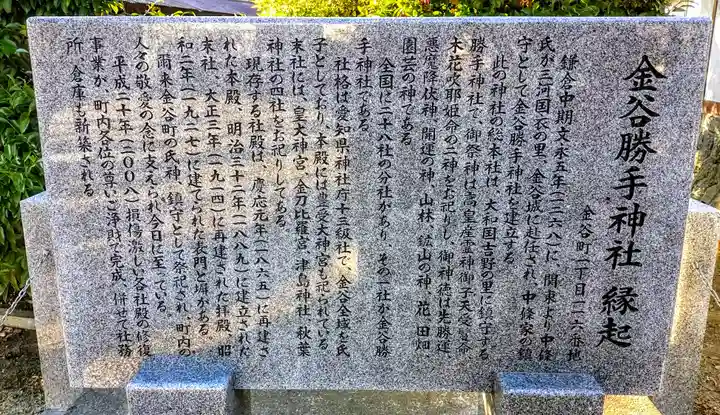 金谷勝手神社 縁起
金谷町一丁目一二六番地
鎌倉中期文永五年(一二六八)に、関東より中條
氏が三河国衣の里、金谷城に赴任され、中條家の鎮
守として金谷勝手神社を建立する
此の神社の総本社は、大和国吉野の里に鎮守する
勝手神社で、御祭神は高皇産霊神御子天受日命
木花咲耶姫命の二神をお祀りし、御神徳は先勝運
悪魔降伏神、開運の神、山林、鉱山の神、花、田畑
園芸の神である
全国に二十八社の分社があり、その一社が金谷勝
手神社である
社格は愛知県神社庁十三級社で、金谷全域を氏
子としており、本殿には豊受大神宮も祀られている
末社には、皇大神宮、金刀比羅宮、津島神社、秋葉
神社の四社をお祀りしてある
現存する社殿は、慶応元年(一八六五)に再建さ
れた本殿、明治三十二年(一八八九)に建立された
末社、大正三年(一九一四)に再建された拝殿、昭
和二年(一九二七)に建てられた表門と塀がある
爾来金谷町の氏神、鎮守として祭祀され、町内の
人々の敬愛の念に支えられ今日に至っている
平成二十年(二〇〇八)損傷激しい各社殿の修復
事業が、町内各位の尊いご浄財で完成、併せて社務
所、倉庫も新築される